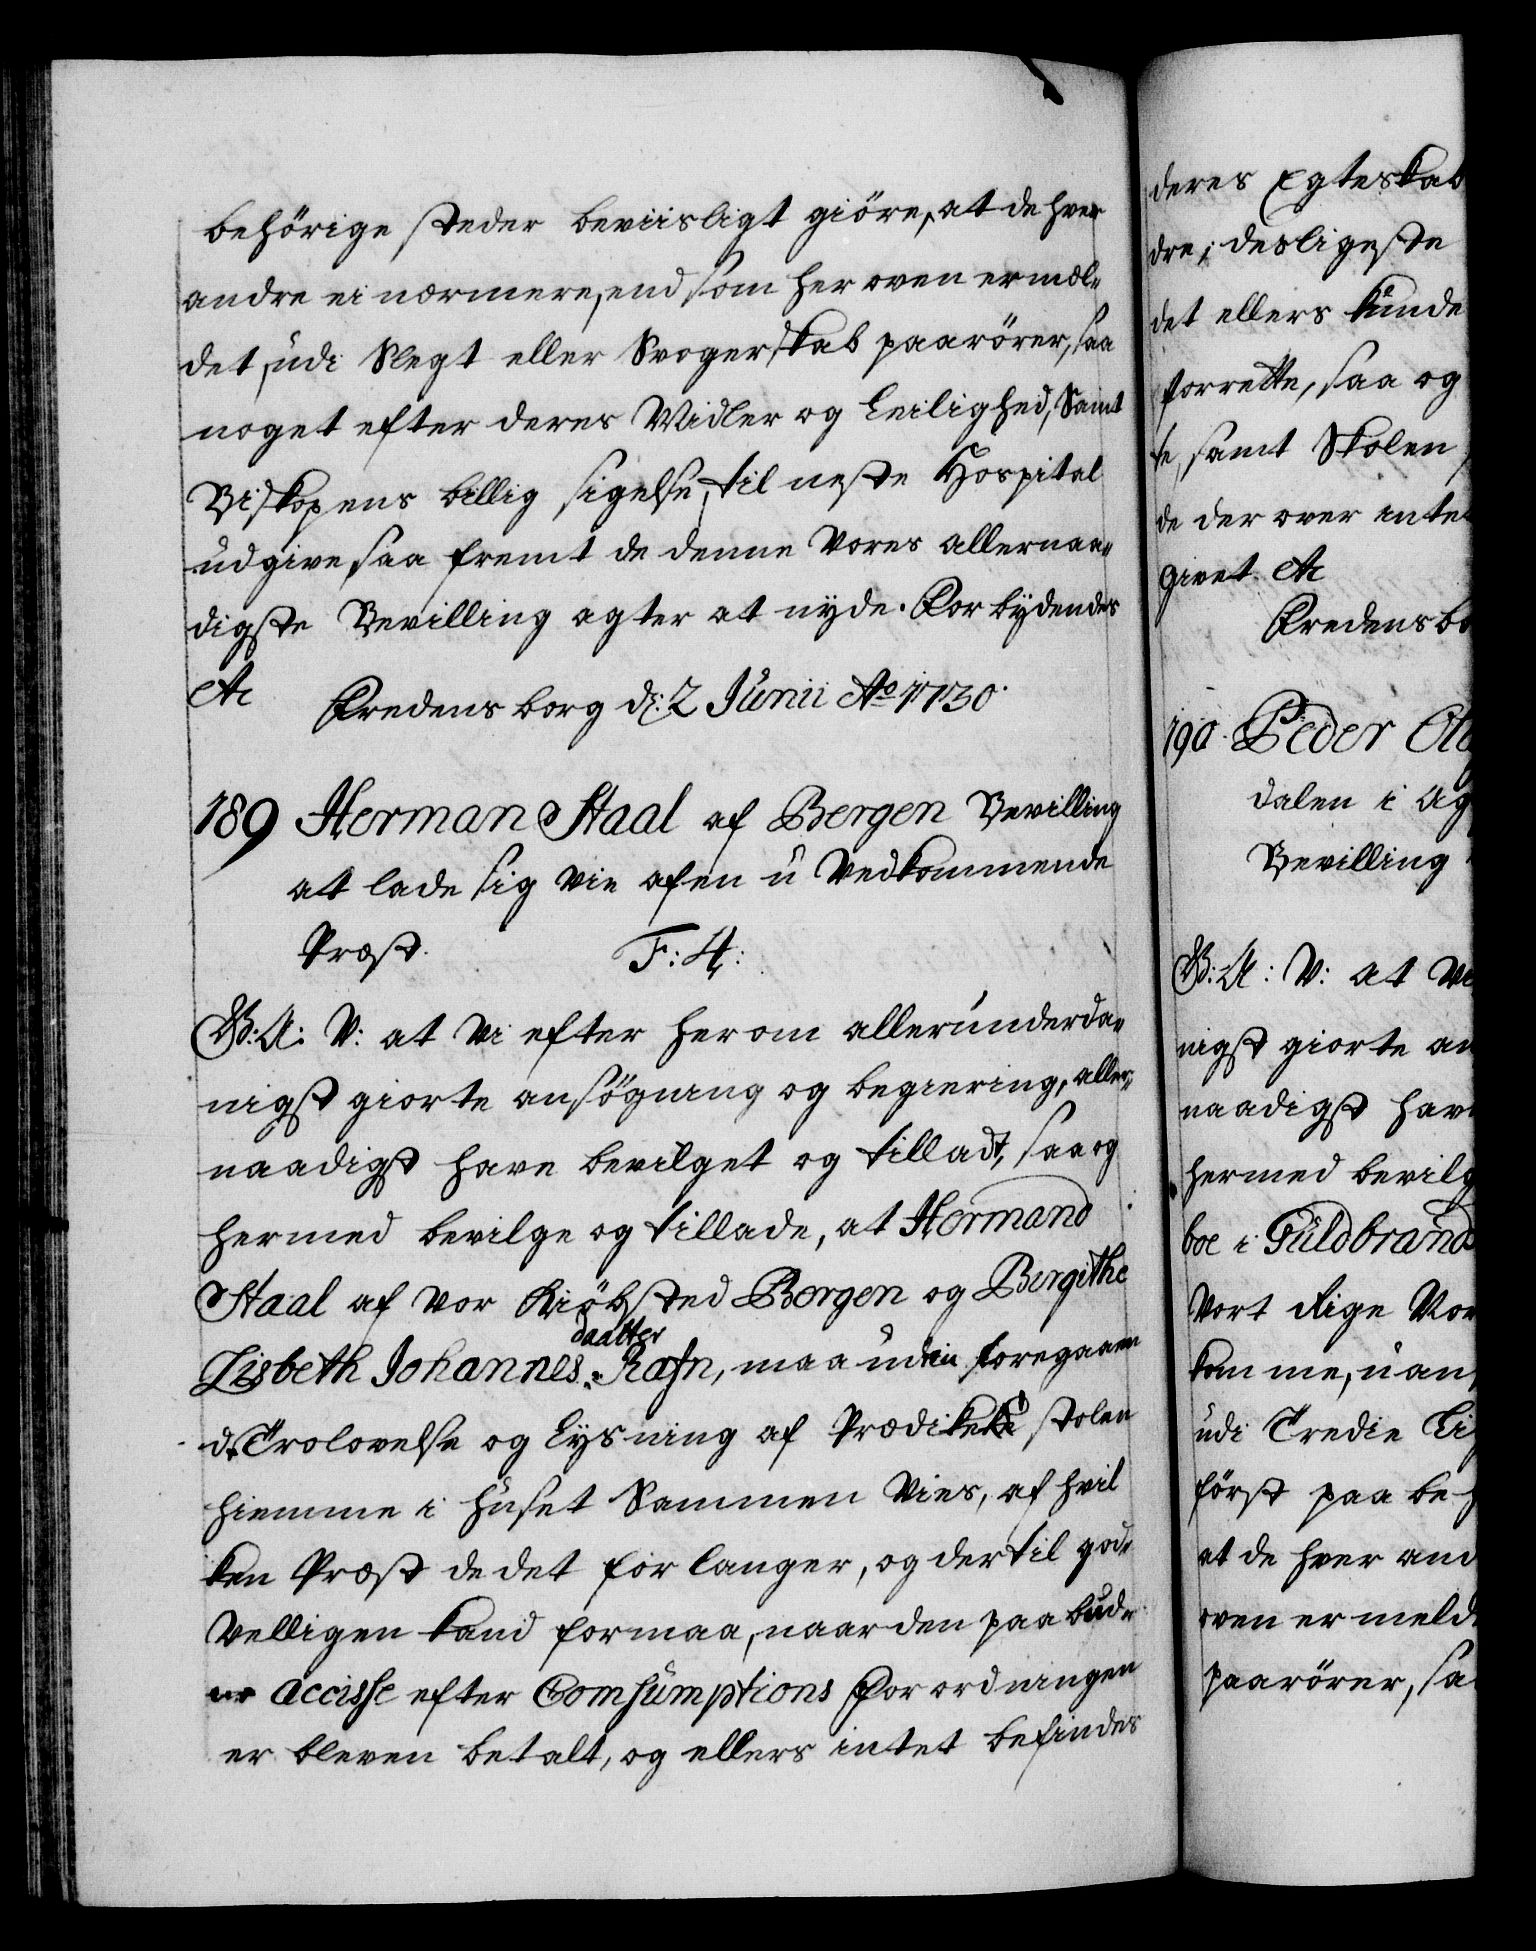 behörige steder beviisligt giöre, at de hver
andre ei nærmere, end som her oven ermel-
det, udi Slegt eller Svogerskab paarörer, saa
noget efter deres Midler og Leilighed, Samt
Biskopens billig sigelse, til neste Hospital
udgive, saa fremt de denne Vores allernaa-
digste Bevilling agter at nyde. Forbydendes
etc
Fredensborg d: 2 Junii Ao 1730.
189 Herman Staal af Bergen Bevilling
at lade sig vie af en u Vedkommende
Præst. F: 4:
G: A: V: at Vi efter herom allerunderda-
nigst giorte ansögning og begiering, aller-
naadigst have bevilget og tilladt, saa og
hermed bevilge og tillade, at Hermand
Staal af vor Kiöbsted Bergen og Birgithe
Lisbeth Johannes daatter Rafn, maa uden foregaaen
de Trolovelse og Lysning af Prædike stolen
hiemme i Huset Sammen Vies, af hvil
ken Præst de det forlanger, og dertil god-
Velligen kand formaa, naar den paabud-
ne Accisse efter Comsumptions Forordningen
er bleven betalt, og ellers intet befindes
deres Egteskab
dre; desligeste
det ellers kunde
forrette, saa og
te, samt Skolen
de der over inte
givet. etc
Fredensbo
190. Peder Ol
dalen i Ag
Bevilling
G: A: V: at Vi
nigst giorte an
naadigst hav
hermed bevilg
boe i Guldbrand
Vort Rige Nor
komme, uan
udi Tredie Li
först paa beh
at de hver and
oven er meld
paarörer, sa